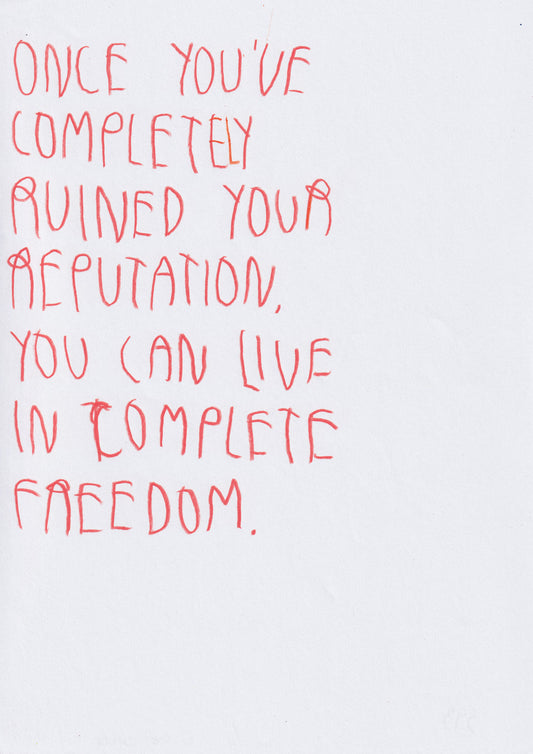 ONCE YOU'VE
COMPLETELY
RUINED YOUR
REPUTATION,
YOU CAN LIVE
IN COMPLETE
FREEDOM.